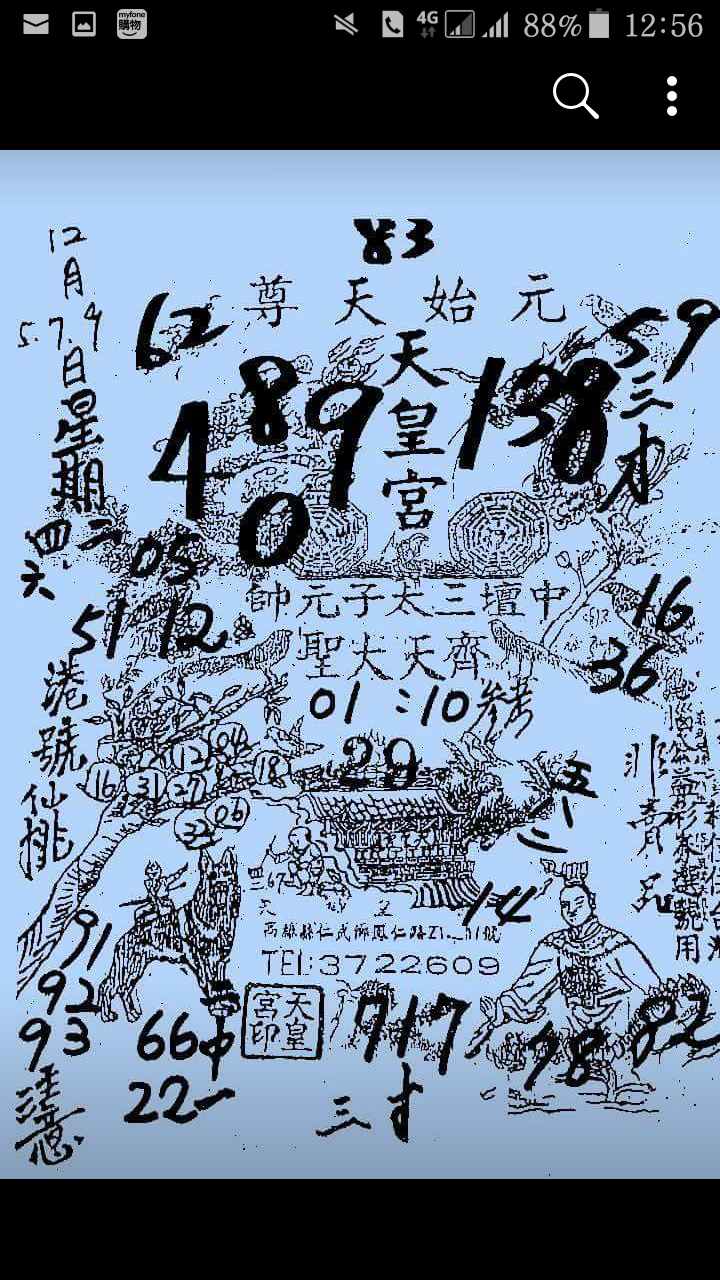 myfone
購物
4G
88%
12:56
83
元始天尊
12月5.7.9日星期二四.六
62
59
天皇宮
489
0
138
三才
05
51 12
中壇三太子元帥
齊天大聖
16
36
港號仙桃
01:10參考
29
12 04
16 31 27 18
22 06
五八二
非賣品
14
高雄縣仁武鄉鳳仁路21
TEL:3722609
天皇宮印
91
92
93
注意
66中
22一
717
三才
78
82